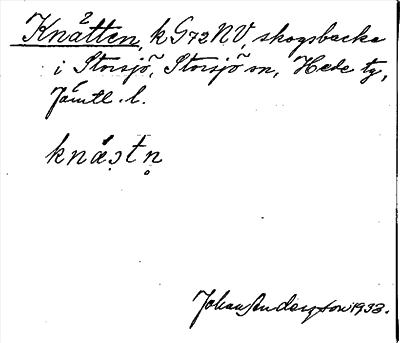 Knätten, k G72NV, skogsbacke
i Storsjö, Storsjö sn, Hede tg,
Jämtl. l.
knǽɔtn̥
Johan Anderzson 1933.